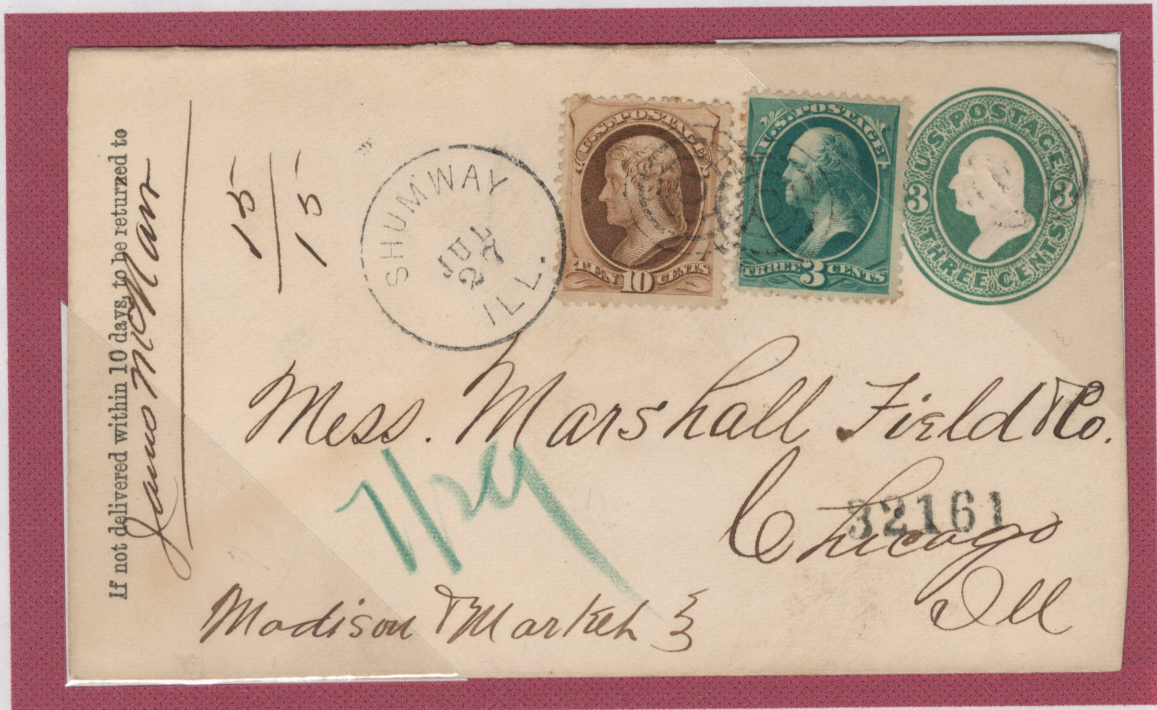 If not delivered within 10 days, to be returned to
James McNair
15
15
SHUMWAY
JUL
27
ILL.
U.S. POSTAGE
TEN 10 CENTS
U.S. POSTAGE
THREE 3 CENTS
U.S. POSTAGE
3 3
THREE CENTS
Mess. Marshall Field & Co.
Chicago
32161
Ill
7/29
Madison & Market